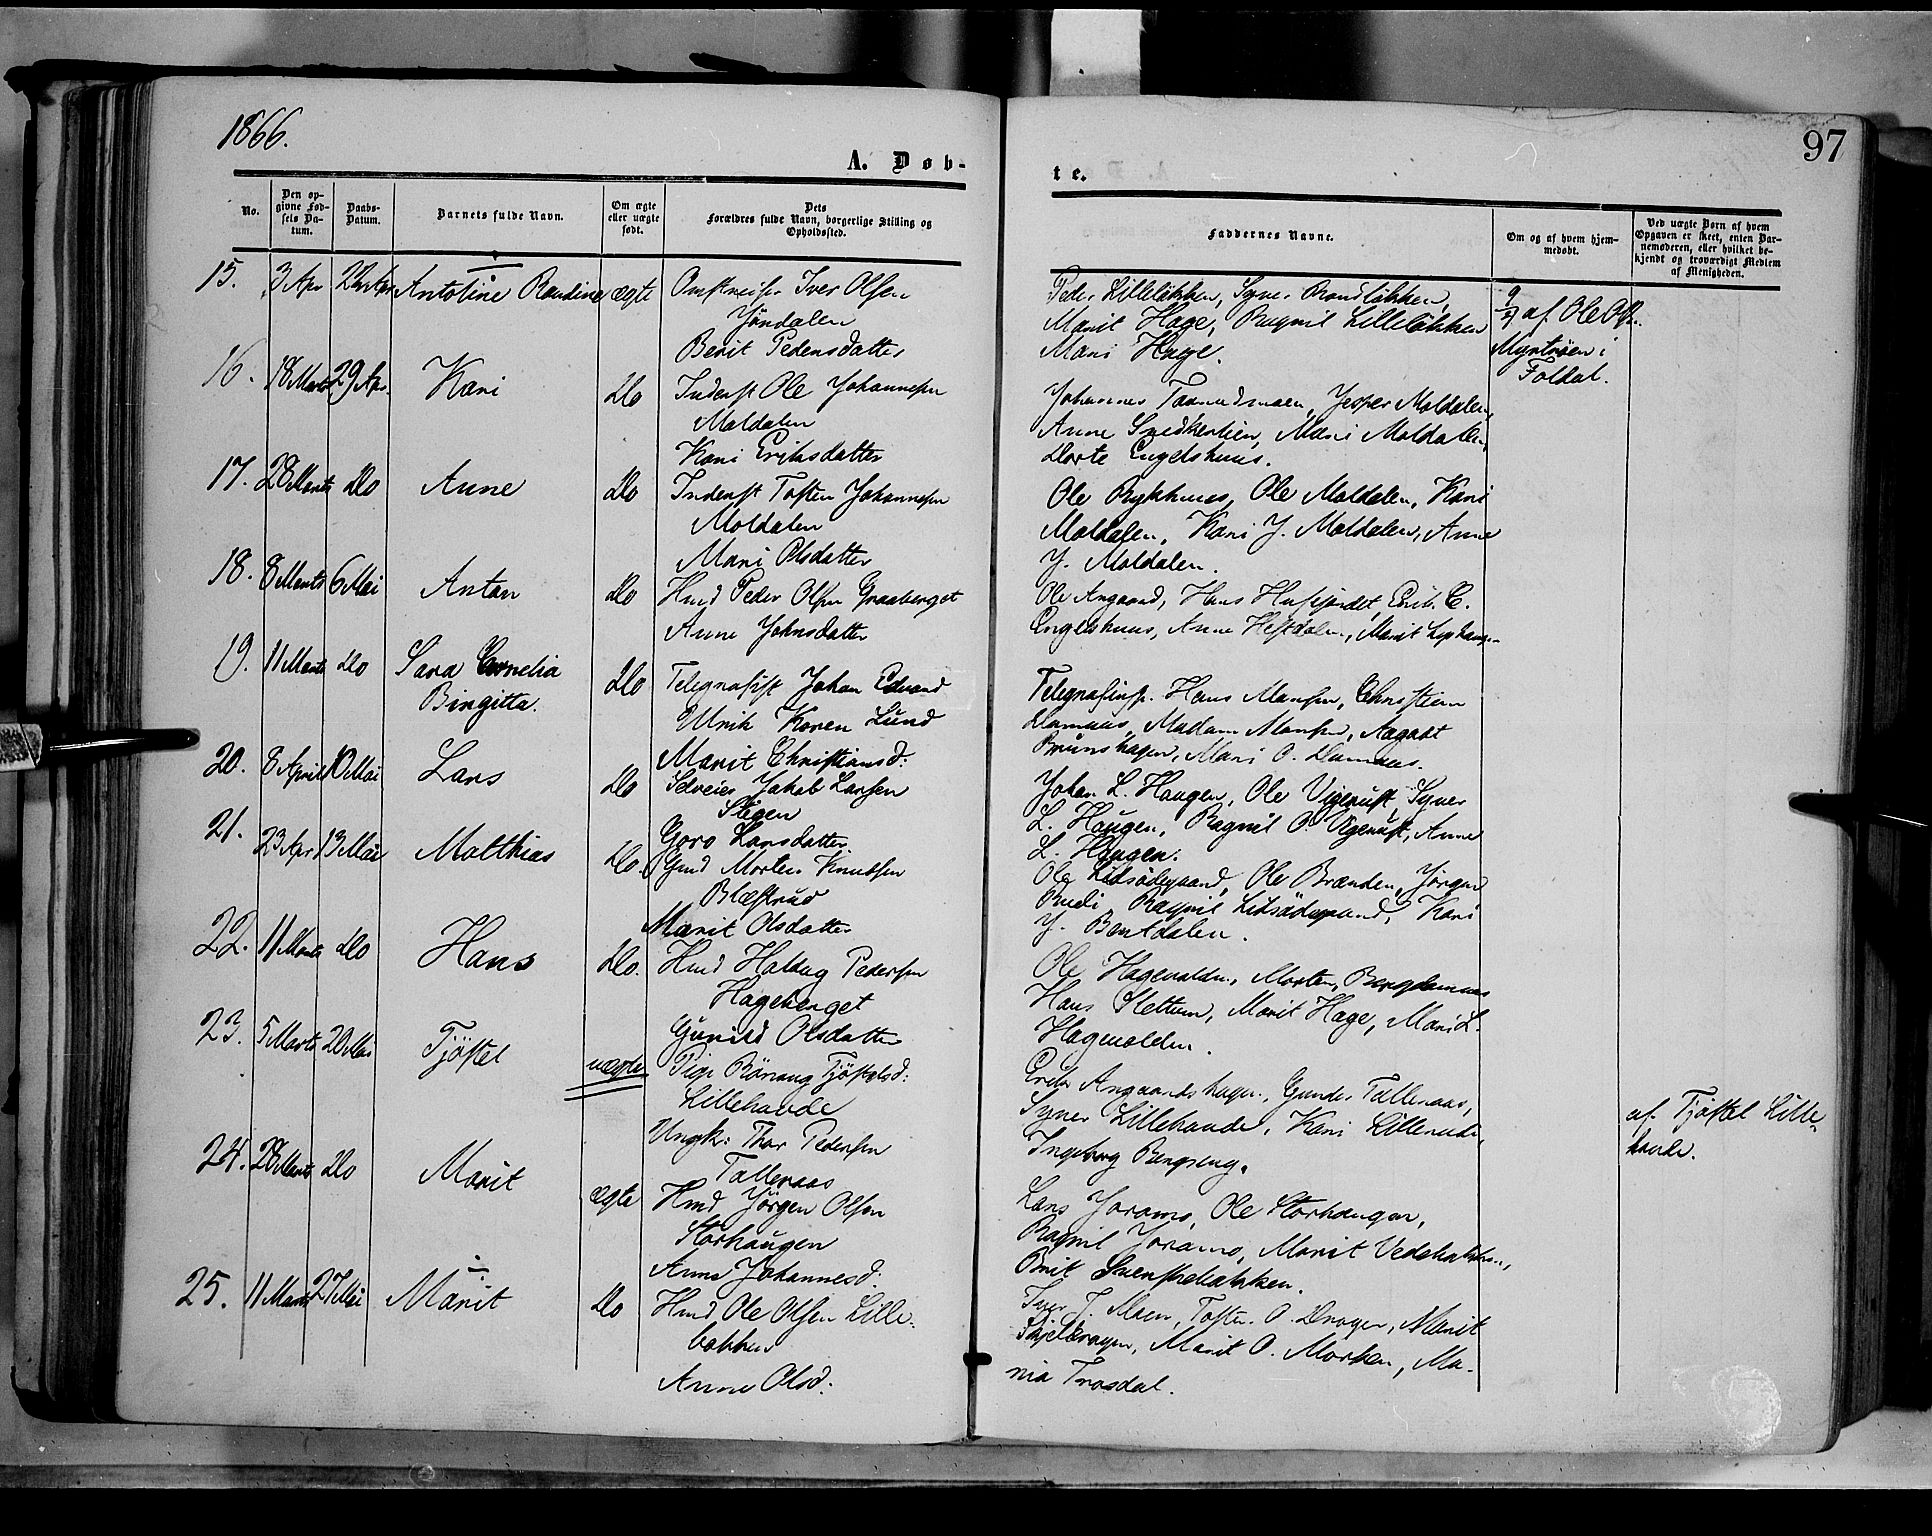 1866.
97
A. Døb-
te.
No.
Den op-
givne Fød-
sels Da-
tum.
Daabs-
Datum.
Barnets fulde Navn.
Om ægte
eller uægte
født.
Dets
Forældres fulde Navn, borgerlige Stilling og
Opholdssted.
Faddernes Navne.
Om og af hvem hjem-
medøbt.
Ved uægte Børn af hvem
Opgaven er skeet, enten Bar-
nemoderen, eller hvilket be-
kjendt og troværdigt Medlem
af Menigheden.
15. 3 Apr Antoline Randine ægte Iver Olsen
Jöndalen
Berit Pedersdatter
Peder Lillelökken, Syver Brandlökken,
Marit Hage, Ragnil Lillelökken
Mari Hage.
af Ole
i
Foldal.
16. 18 Marts 29 Apr. Kari Do Inderst Ole Johannesen
Moldalen
Kari Eriksdatter
Johannes Jesper Moldalen,
Anne Mari Moldalen,
Dorte Engelshuus.
17. 28 Marts Do Anne Do Inderst Tosten Johannesen
Moldalen
Mari Olsdatter
Ole Rykhuus, Ole Moldalen, Kari
Moldalen, Kari J. Moldalen, Anne
J. Moldalen.
18. 8 Marts 6 Mai Anton Do Hmd Peder Olsen Graaberget
Anne Johnsdatter
Ole Angaard, Hans
Engelshuus, Anne Hestdalen, Marit
19. 11 Marts Do Sara Cornelia
Birgitta.
Do Telegrafist Johan Edvard
Ulrik Koren Lund
Marit Christiansd:
Telegrafinsp. Hans Christian
Domaas, Madam Aagaat
Mari O. Domaas.
20. 8 April 10 Mai Lars Do Selveier Jakob Larsen
Stegen
Goro Larsdatter
Johan L. Haugen, Ole Vigerust, Syver
L. Haugen, Ragnil O. Vigerust, Anne
L. Haugen.
21. 23 Apr 13 Mai Matthias Do. Gmd Morten Knudsen
Blæstrud
Marit Olsdatter
Ole Lidsödegaard, Ole Brænden, Jörgen
Rudi Ragnil Lidsödegaard, Kari
J. Bentdalen.
22. 11 Marts Do Hans Do. Hmd Haldug Pedersen
Hageberget
Gunild Olsdatter
Ole Hagevolden, Morten
Hans Slettum, Marit Hage, Mari L.
Hagevolden.
23. 5 Marts 20 Mai Tjöstel uægte Pige Rönnaug Tjöstelsd:
Lillehovde
Ungk: Thor Pedersen
Talleraas
Erik Angaardshagen, Gunder Talleraas,
Syver Lillehovde, Kari Lillerudi,
Ingeborg Bergseng.
af Tjöstel Lille-
hovde.
24. 28 Marts Do Marit ægte Hmd Jörgen Olsen
Storhaugen
Anne Johannesd:
Lars Joramo, Ole Storhaugen,
Ragnil Joramo, Marit
Brit
25. 11 Marts 27 Mai Marit Do Hmd Ole Olsen Lille-
bakken
Anne Olsd:
Iver J. Moen, Tosten O. Marit
Marit O. Morken, Ma-
ria Trosdal.